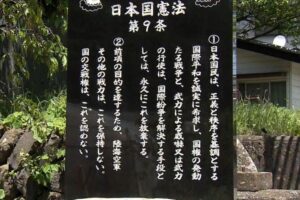 日本国憲法
第9条
①日本国民は、正義と秩序を基調とする
国際平和を誠実に希求し、国権の発動
たる戦争と、武力による威嚇又は武力
の行使は、国際紛争を解決する手段と
しては、永久にこれを放棄する。
②前項の目的を達するため、陸海空軍
その他の戦力は、これを保持しない。
国の交戦権は、これを認めない。